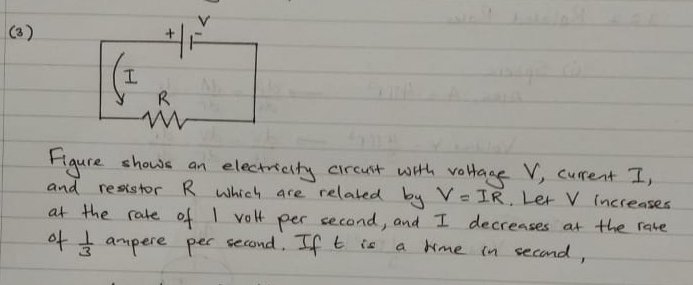 (3)
+ V -
I
R
Figure shows an electricity circuit with voltage V, current I,
and resistor R which are related by V = IR. Let V increases
at the rate of 1 volt per second, and I decreases at the rate
of 1/3 ampere per second. If t is a time in second,